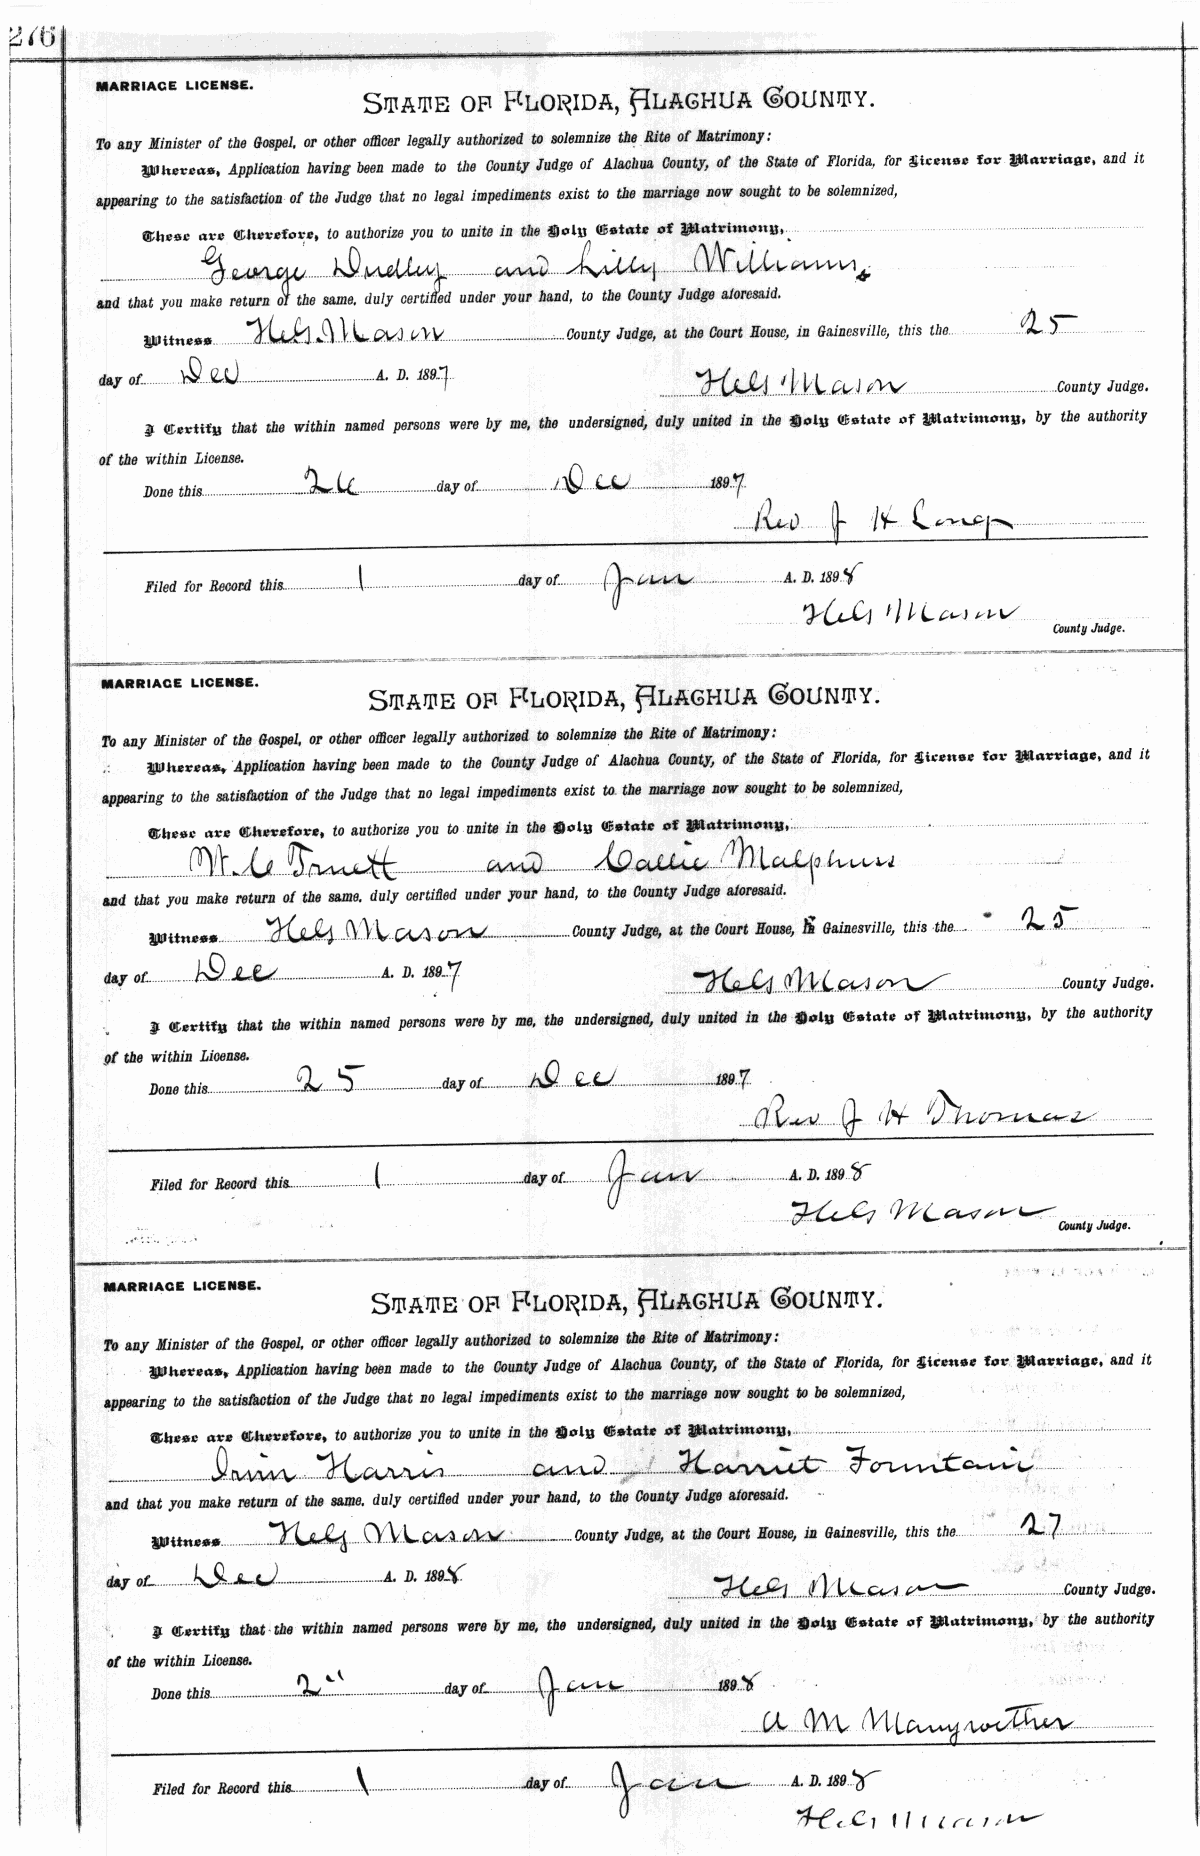 276
MARRIAGE LICENSE.
STATE OF FLORIDA, ALACHUA COUNTY.
To any Minister of the Gospel, or other officer legally authorized to solemnize the Rite of Matrimony:
Whereas, Application having been made to the County Judge of Alachua County, of the State of Florida, for License for Marriage, and it
appearing to the satisfaction of the Judge that no legal impediments exist to the marriage now sought to be solemnized,
These are Therefore, to authorize you to unite in the Holy Estate of Matrimony,
George Dudley and Lilly Williams
and that you make return of the same, duly certified under your hand, to the County Judge aforesaid.
Witness H.G. Mason County Judge, at the Court House, in Gainesville, this the 25
day of Dec A. D. 1897 H.G. Mason County Judge.
I Certify that the within named persons were by me, the undersigned, duly united in the Holy Estate of Matrimony, by the authority
of the within License.
Done this 26 day of Dec 1897
Rev J H Long
Filed for Record this 1 day of Jan A. D. 1898
H.G. Mason
County Judge.
MARRIAGE LICENSE.
STATE OF FLORIDA, ALACHUA COUNTY.
To any Minister of the Gospel, or other officer legally authorized to solemnize the Rite of Matrimony:
Whereas, Application having been made to the County Judge of Alachua County, of the State of Florida, for License for Marriage, and it
appearing to the satisfaction of the Judge that no legal impediments exist to the marriage now sought to be solemnized,
These are Therefore, to authorize you to unite in the Holy Estate of Matrimony,
W. C Truett and Callie Malphurs
and that you make return of the same, duly certified under your hand, to the County Judge aforesaid.
Witness H.G. Mason County Judge, at the Court House, in Gainesville, this the 25
day of Dec A. D. 1897 H.G. Mason County Judge.
I Certify that the within named persons were by me, the undersigned, duly united in the Holy Estate of Matrimony, by the authority
of the within License.
Done this 25 day of Dec 1897
Rev J H Thomas
Filed for Record this 1 day of Jan A. D. 1898
H.G. Mason
County Judge.
MARRIAGE LICENSE.
STATE OF FLORIDA, ALACHUA COUNTY.
To any Minister of the Gospel, or other officer legally authorized to solemnize the Rite of Matrimony:
Whereas, Application having been made to the County Judge of Alachua County, of the State of Florida, for License for Marriage, and it
appearing to the satisfaction of the Judge that no legal impediments exist to the marriage now sought to be solemnized,
These are Therefore, to authorize you to unite in the Holy Estate of Matrimony,
Irvin Harris and Harriet Fountain
and that you make return of the same, duly certified under your hand, to the County Judge aforesaid.
Witness H.G. Mason County Judge, at the Court House, in Gainesville, this the 27
day of Dec A. D. 1898 H.G. Mason County Judge.
I Certify that the within named persons were by me, the undersigned, duly united in the Holy Estate of Matrimony, by the authority
of the within License.
Done this 2" day of Jan 1898
A M Manywether
Filed for Record this 1 day of Jan A. D. 1898
H.G. Mason